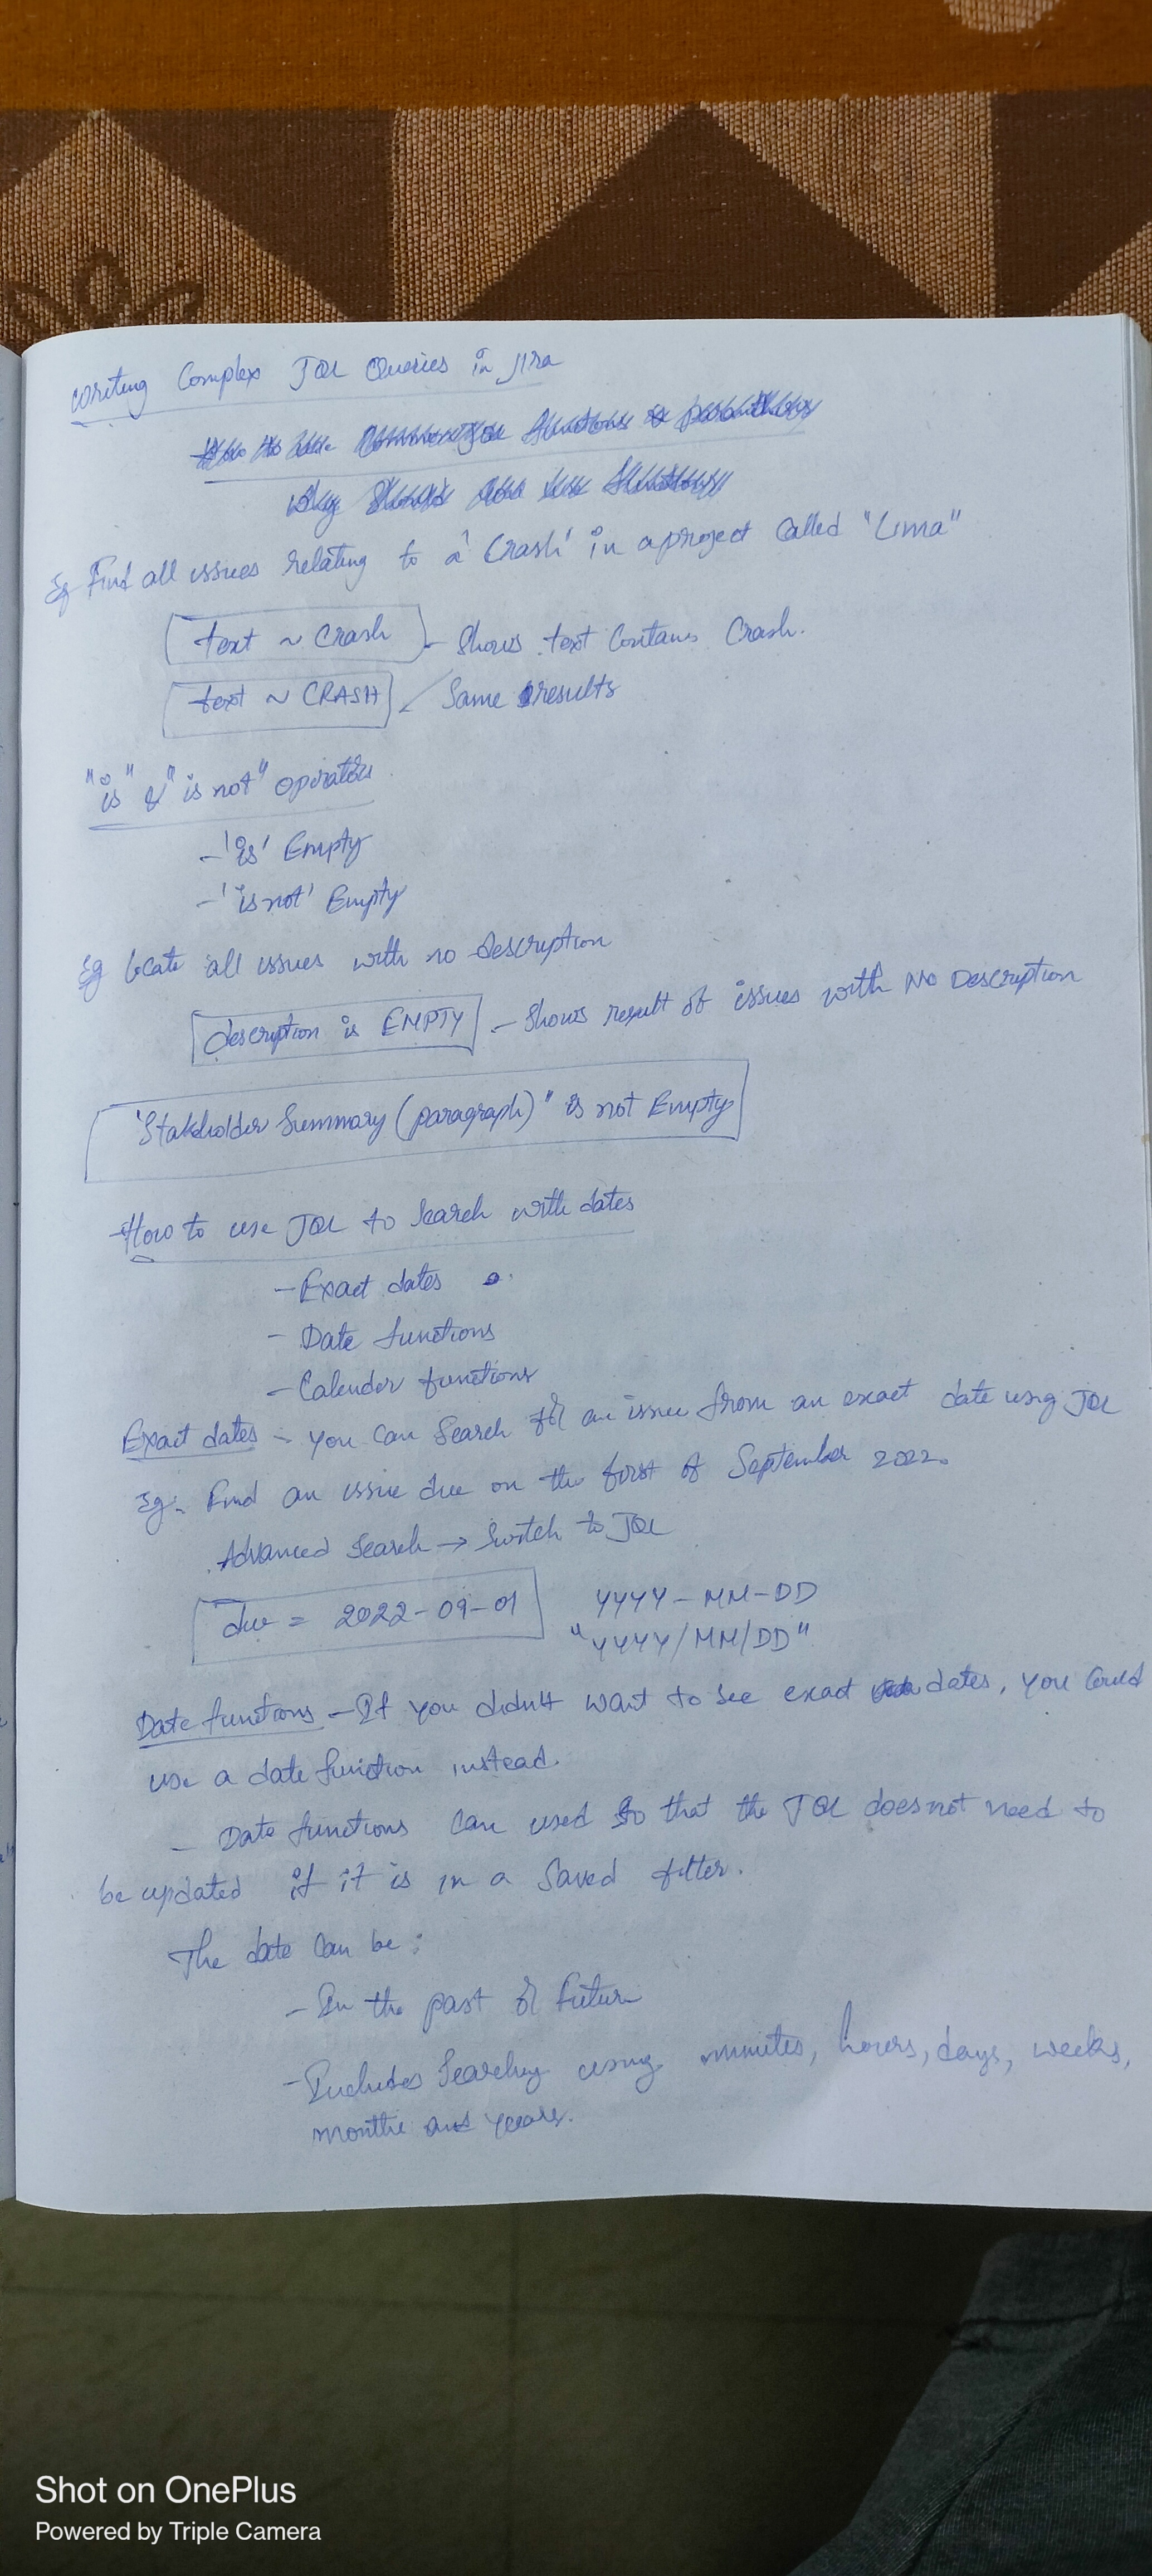 Writing Complex JQL Queries in Jira
Eg Find all issues relating to a 'Crash' in a project called "Lima"
text ~ Crash - Shows text Contains Crash.
text ~ CRASH Same results
"is" & "is not" operators
- 'is' Empty
- 'is not' Empty
Eg locate all issues with no description
description is EMPTY - Shows result of issues with No Description
"Stakeholder Summary (paragraph)" is not Empty
How to use JQL to Search with dates
- Exact dates
- Date functions
- Calender functions
Exact dates - You can Search for an issue from an exact date using JQL
Eg:- Find an issue due on the first of September 2022.
Advanced Search → Switch to JQL
due = 2022-09-01 YYYY-MM-DD
"YYYY/MM/DD"
Date functions - If you didn't want to see exact dates, you could
use a date function instead.
- Date functions can used so that the JQL does not need to
be updated if it is in a Saved filter.
The date can be :
- In the past or future
- Includes Searching using minutes, hours, days, weeks,
months and years.
Shot on OnePlus
Powered by Triple Camera